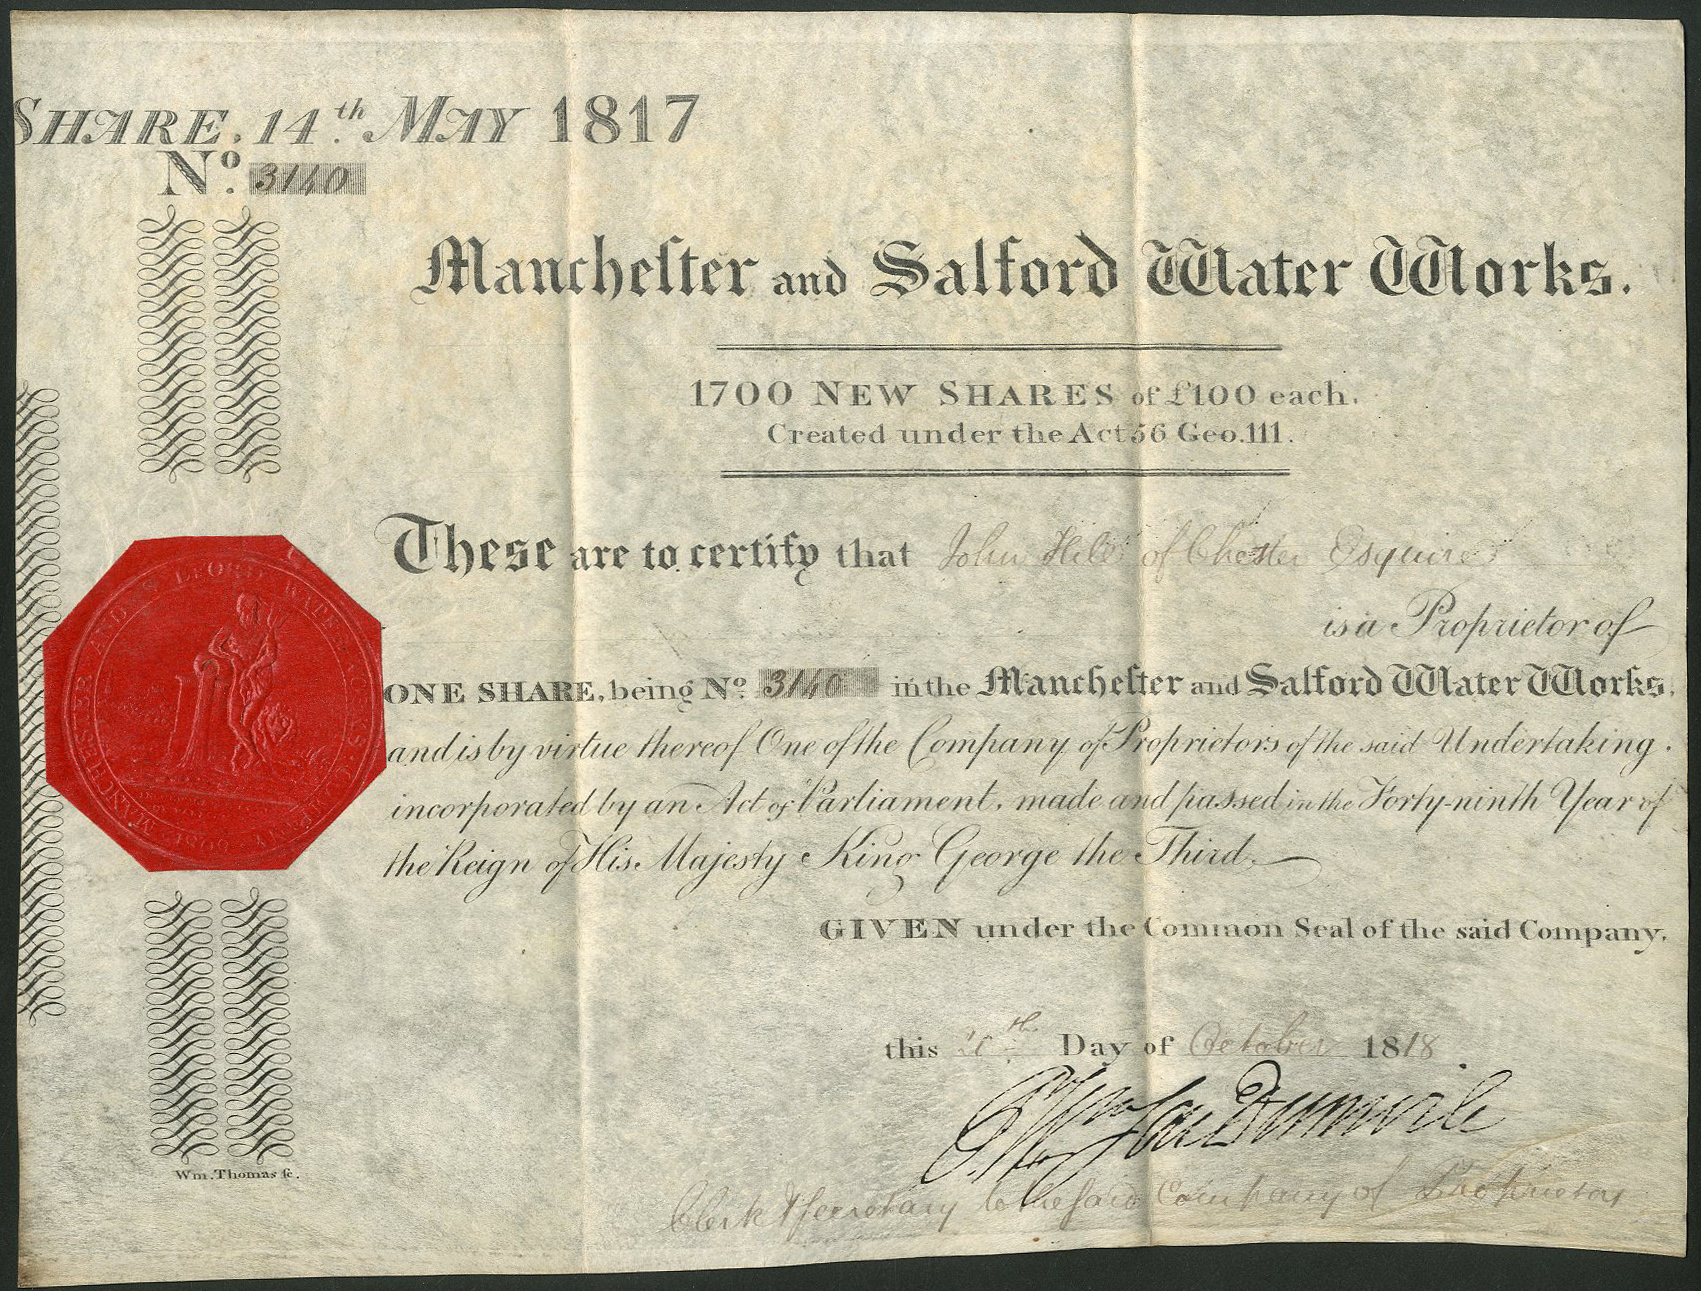 SHARE. 14th. MAY 1817
No. 3140
Mancheſter and Salford Water Works.
1700 NEW SHARES of £100 each.
Created under the Act 56 Geo.III.
These are to certify that John Hill of Chester Esquire
is a Proprietor of
ONE SHARE, being No. 3140 in the Mancheſter and Salford Water Works,
and is by virtue thereof One of the Company of Proprietors of the said Undertaking.
incorporated by an Act of Parliament, made and passed in the Forty-ninth Year of
the Reign of His Majesty King George the Third.
GIVEN under the Common Seal of the said Company,
this 20th Day of October 1818
Wm Dumvile
Clerk & Secretary to the said Company of Proprietors
Wm. Thomas ſc.
MANCHESTER AND SALFORD WATER WORKS COMPANY